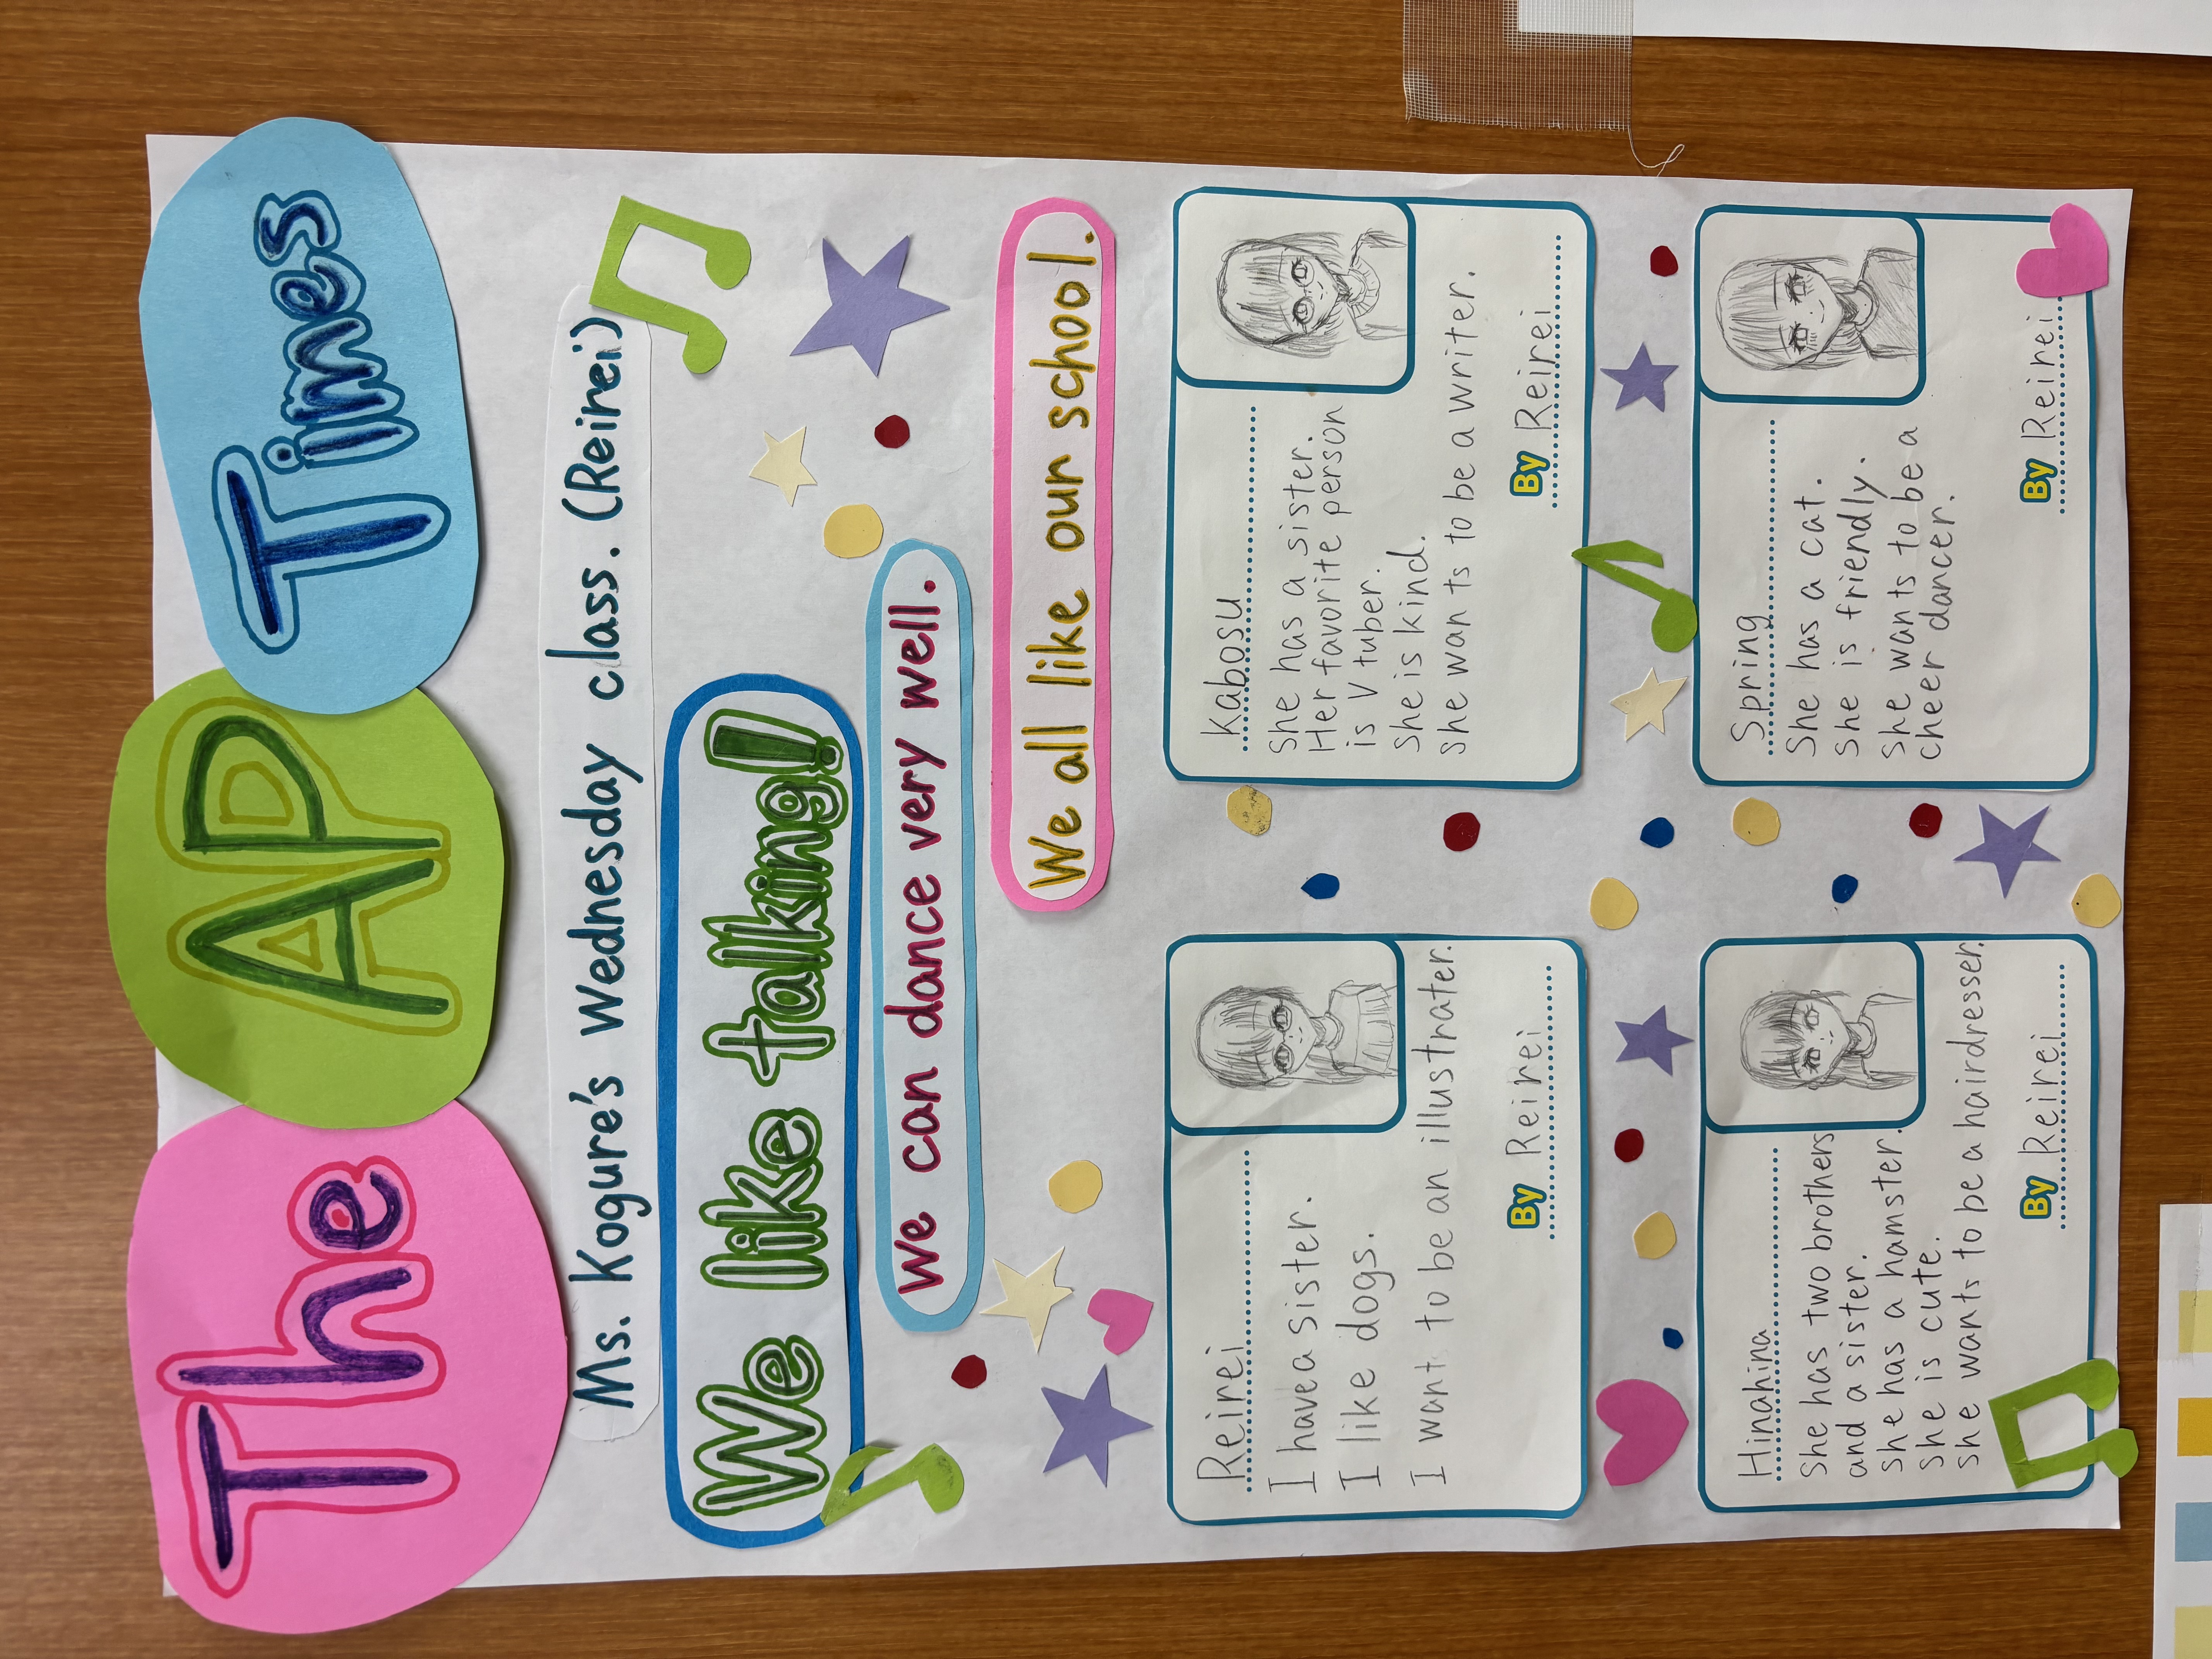 The AP Times
Ms. Kogure's Wednesday class. (Reirei)
We like talking!
We can dance very well.
We all like our school.
Reirei
I have a sister.
I like dogs.
I want to be an illustrater.
By Reirei
Kabosu
She has a sister.
Her favorite person
is V tuber.
She is kind.
She wants to be a writer.
By Reirei
Hinahina
She has two brothers
and a sister.
She has a hamster.
She is cute.
She wants to be a hairdresser.
By Reirei
Spring
She has a cat.
She is friendly.
She wants to be a
cheer dancer.
By Reirei